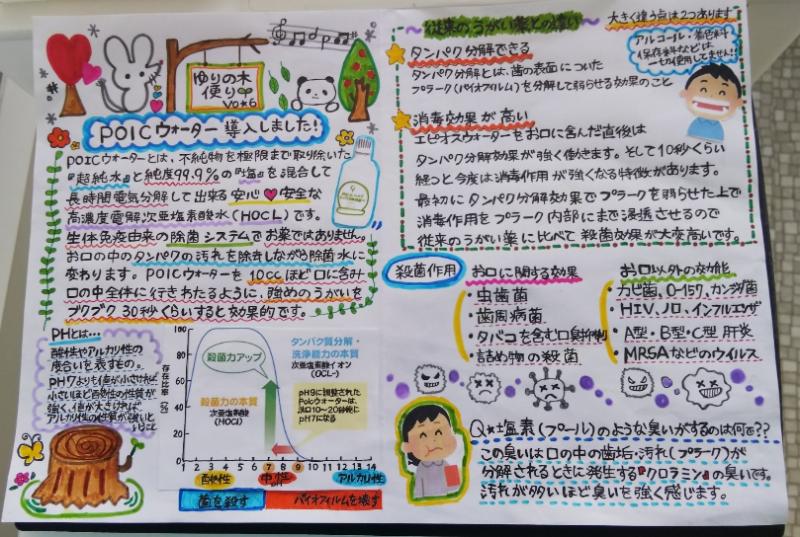 ゆりの木
便り
Vo*6
POICウォーター導入しました!
POICウォーターとは、不純物を極限まで取り除いた
『超純水』と純度99.9%の『塩』を混合して
長時間電気分解して出来る安心♥安全な
高濃度電解次亜塩素酸水(HOCL)です。
生体免疫由来の除菌システムでお薬ではありません。
お口の中のタンパクの汚れを除去しながら除菌水に
変わります。POICウォーターを10ccほど口に含み
口の中全体に行きわたるように、強めのうがいを
ブクブク30秒くらいすると効果的です。
PHとは…
酸性やアルカリ性の
度合いを表すもの。
PH7よりも値が小さければ
小さいほど酸性の性質が
強く、値が大きければ
アルカリ性の性質が強いと
いうこと
存在比率(%)
100
80
60
40
20
0
殺菌力アップ
殺菌力の本質
次亜塩素酸
(HOCl)
タンパク質分解・
洗浄能力の本質
次亜塩素酸イオン
(OCL-)
pH9に調整された
Poicウォーターは、
約10〜20秒後に
pH7になる
1 2 3 4 5 6 7 8 9 10 11 12 13 14
酸性 中性 アルカリ性
pH
菌を殺す バイオフィルムを壊す
従来のうがい薬との違い
大きく違う点は2つあります
タンパク分解できる
タンパク分解とは、歯の表面についた
プラーク(バイオフィルム)を分解して弱らせる効果のこと
アルコール・着色料
保存料などは
一切使用してません!!
消毒効果が高い
エピオスウォーターをお口に含んだ直後は
タンパク分解効果が強く働きます。そして10秒くらい
経つと今度は消毒作用が強くなる特徴があります。
最初にタンパク分解効果でプラークを弱らせた上で
消毒作用をプラーク内部にまで浸透させるので
従来のうがい薬に比べて殺菌効果が大変高いです。
殺菌作用
お口に関する効果
・虫歯菌
・歯周病菌
・タバコを含む口臭抑制
・詰め物の殺菌
お口以外の効能
・カビ菌、O-157、カンジダ菌
・HIV、ノロ、インフルエンザ
・A型・B型・C型肝炎
・MRSAなどのウイルス
Q**塩素(プール)のような臭いがするのは何で??
この臭いは口の中の歯垢・汚れ(プラーク)が
分解されるときに発生する『クロラミン』の臭いです。
汚れが多いほど臭いを強く感じます。